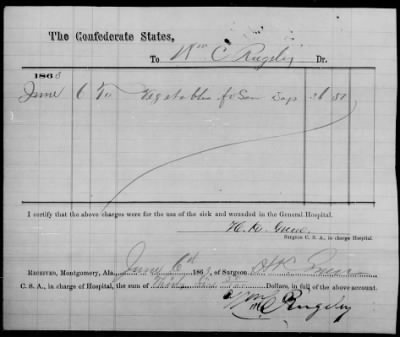 The Confederate States,
To Wm C Rugeley Dr.
1863
June 6 To Vegetables for
I certify that the above charges were for the use of the sick and wounded in the General Hospital.
Surgeon C. S. A., in charge Hospital.
RECEIVED, Montgomery, Ala. June 6th 186 of Surgeon
C. S. A., in charge of Hospital, the sum of Dollars, in full of the above account.
Wm C Rugeley